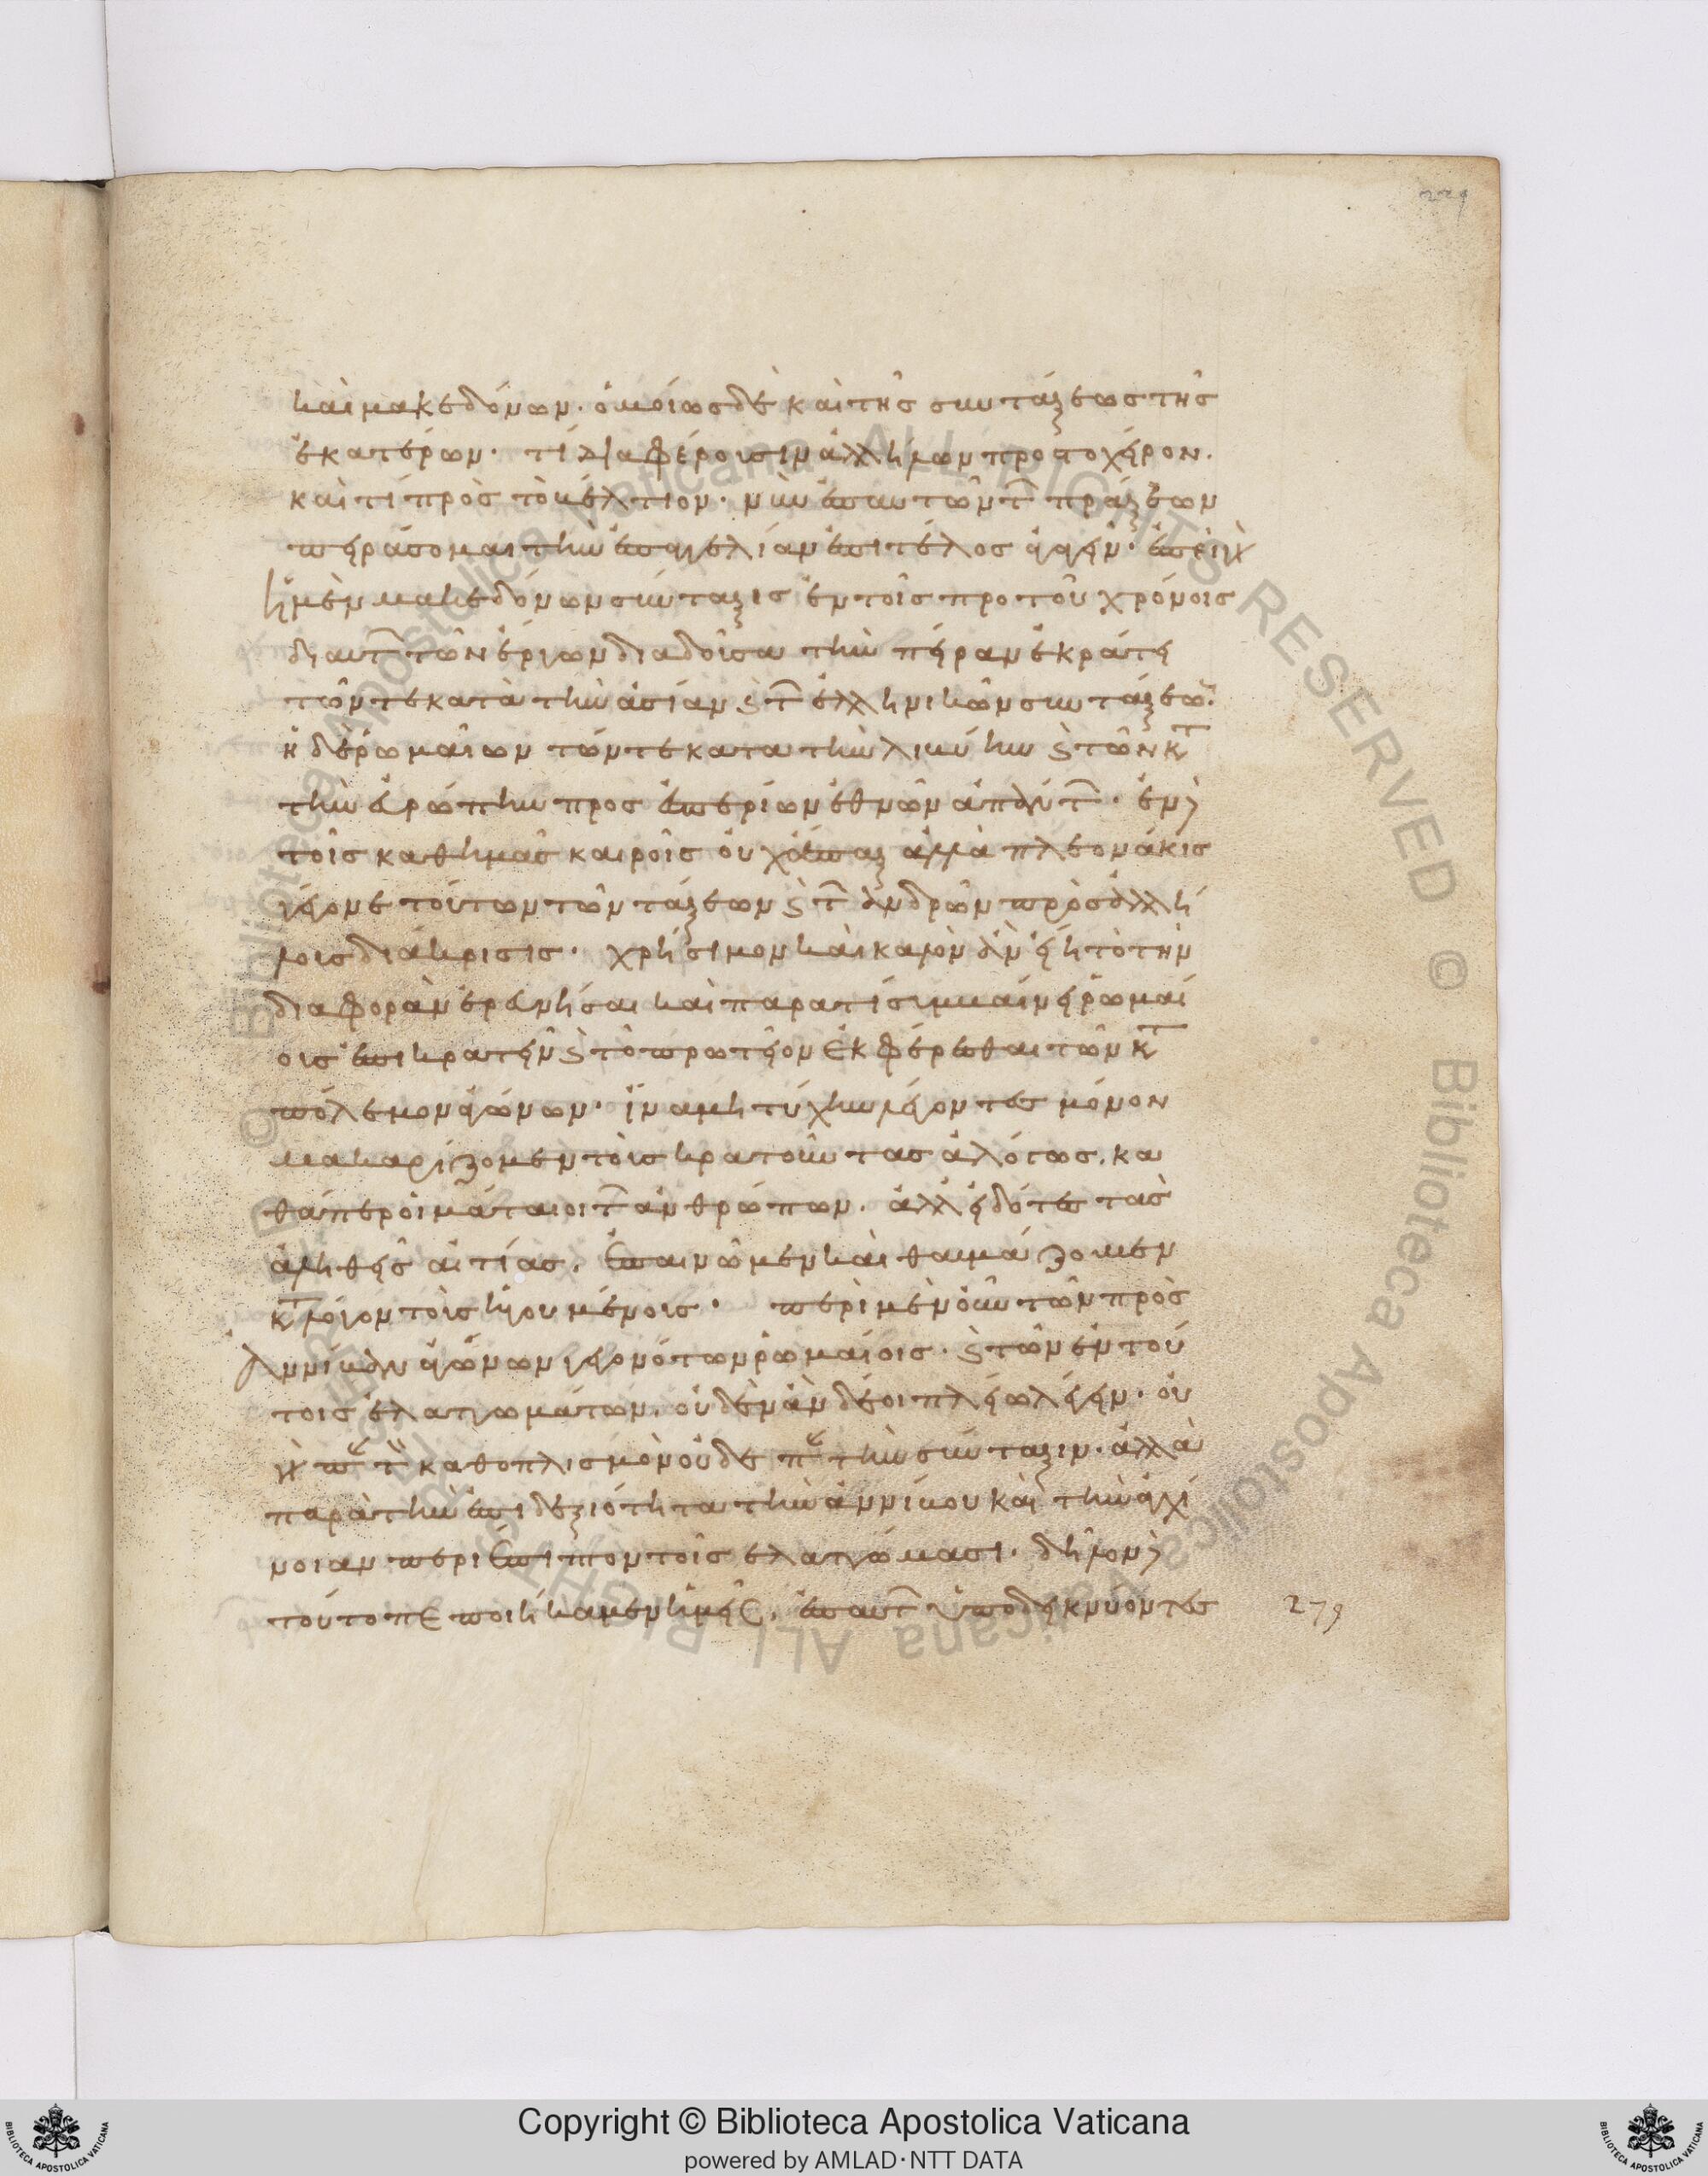 καὶ μακεδόνων· ὁμοίως δὲ καὶ τῆς συντάξεως τῆς
ἑκατέρων· τί διαφέρουσιν ἀλλήλων προς το χεῖρον·
καὶ τί πρὸς τὸ βέλτιον· νῦν ἐπ αυτῶν τῶν πράξεων
πειράσομαι τὴν ἐπαγγελίαν ἐπι τέλος ἀγαγεῖν· ἐπεὶ γὰρ
ἡ μὲν μακεδόνων σύνταξις ἐν τοῖς προ τοῦ χρόνοις
δι αυτῶν τῶν ἔργων διαδοῦσα τὴν πεῖραν ἐκράτει
τῶν τε κατὰ τὴν ἀσίαν καὶ τῶν ἑλληνικῶν συντάξεων·
ἡ δὲ ῥωμαίων τῶν τε κατα τὴν λιβύην καὶ τῶν κατὰ
τὴν εὐρώπην προς ἑσπερίων ἐθνῶν ἁπάντων· ἐν δὲ
τοῖς καθ ημᾶς καιροῖς οὐχ ἅπαξ ἀλλὰ πλεονάκις
γέγονε τούτων τῶν τάξεων καὶ τῶν ἀνδρῶν πρὸς ἀλλή
λους διάκρισις· χρήσιμον καὶ καλὸν ἂν εἴη τὸ τὴν
διαφορὰν ἐρευνῆσαι καὶ παρα τί συμβαίνει ῥωμαί
ους ἐπικρατεῖν καὶ τὸ πρωτεῖον ἐκφέρεσθαι τῶν κατὰ
πόλεμον ἀγώνων· ἵνα μὴ τύχην λέγοντες μόνον
μακαρίζομεν τοὺς κρατοῦντας ἀλόγως· κα
θάπερ οἱ μάταιοι τῶν ἀνθρώπων· ἀλλ εἰδότες τὰς
ἀληθεῖς αἰτίας· ἐπαινῶμεν καὶ θαυμάζομεν
κατὰ λόγον τοὺς ἡγουμένους· περὶ μὲν οὖν τῶν πρὸς
ἀννίβαν ἀγώνων γεγονότων ῥωμαίοις· καὶ τῶν ἐν τού
τοις ἐλαττωμάτων· οὐδὲν ἂν δέοι πλείω λέγειν· οὐ
γὰρ παρὰ τὸν καθοπλισμὸν οὐδὲ παρὰ τὴν σύνταξιν· ἀλλὰ
παρὰ τὴν ἐπιδεξιότητα τὴν ἀννίβου καὶ τὴν ἀγχί
νοιαν περιέπιπτον τοῖς ἐλαττώμασι· δῆλον δὲ
τοῦτο πεποιήκαμεν ἡμεῖς· ἐπ αυτῶν ὑποδεικνύοντες
279